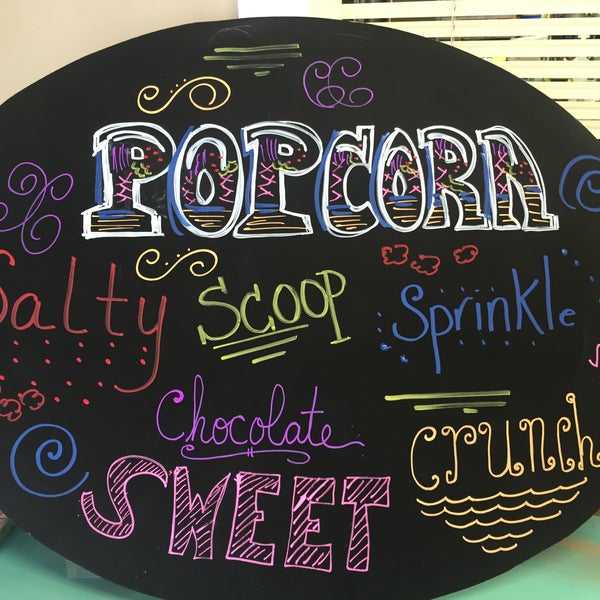 POPCORN
Salty Scoop Sprinkle
Chocolate
crunch
SWEET